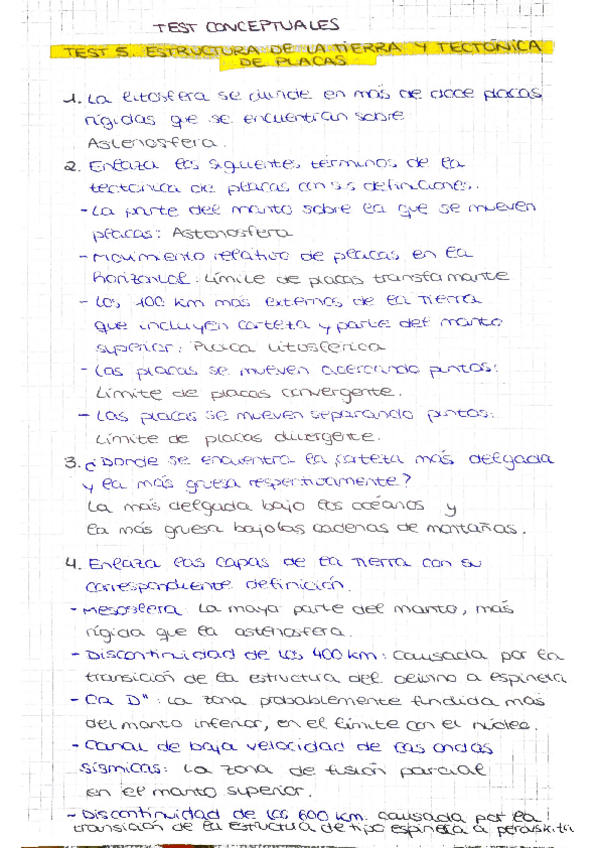 TEST CONCEPTUALES
TEST 5. ESTRUCTURA DE LA TIERRA Y TECTÓNICA
DE PLACAS
1. La litosfera se divide en más de doce placas
rígidas que se encuentran sobre
Astenosfera.
2. Enlaza los siguientes términos de la
tectónica de placas con sus definiciones.
- La parte del manto sobre la que se mueven
placas: Astenosfera
- Movimiento relativo de placas en la
horizontal: Límite de placas transformante
- Los 100 km más externos de la Tierra
que incluyen corteza y parte del manto
superior: Placa litosférica
- Las placas se mueven acercando puntos:
Límite de placas convergente.
- Las placas se mueven separando puntos:
Límite de placas divergente.
3. ¿Donde se encuentra la corteza más delgada
y la más gruesa respectivamente?
La más delgada bajo los océanos y
la más gruesa bajo las cadenas de montañas.
4. Enlaza las capas de la Tierra con su
correspondiente definición.
- Mesosfera: La maya parte del manto, más
rígida que la astenosfera.
- Discontinuidad de los 400 km: causada por la
transición de la estructura del olivino a espinela
- Ca D": La zona probablemente fundida más
del manto inferior, en el límite con el núcleo.
- Canal de baja velocidad de las ondas
sísmicas: La zona de fusión parcial
en el manto superior.
- Discontinuidad de los 600 km. causada por la
transición de la estructura de tipo espinela a